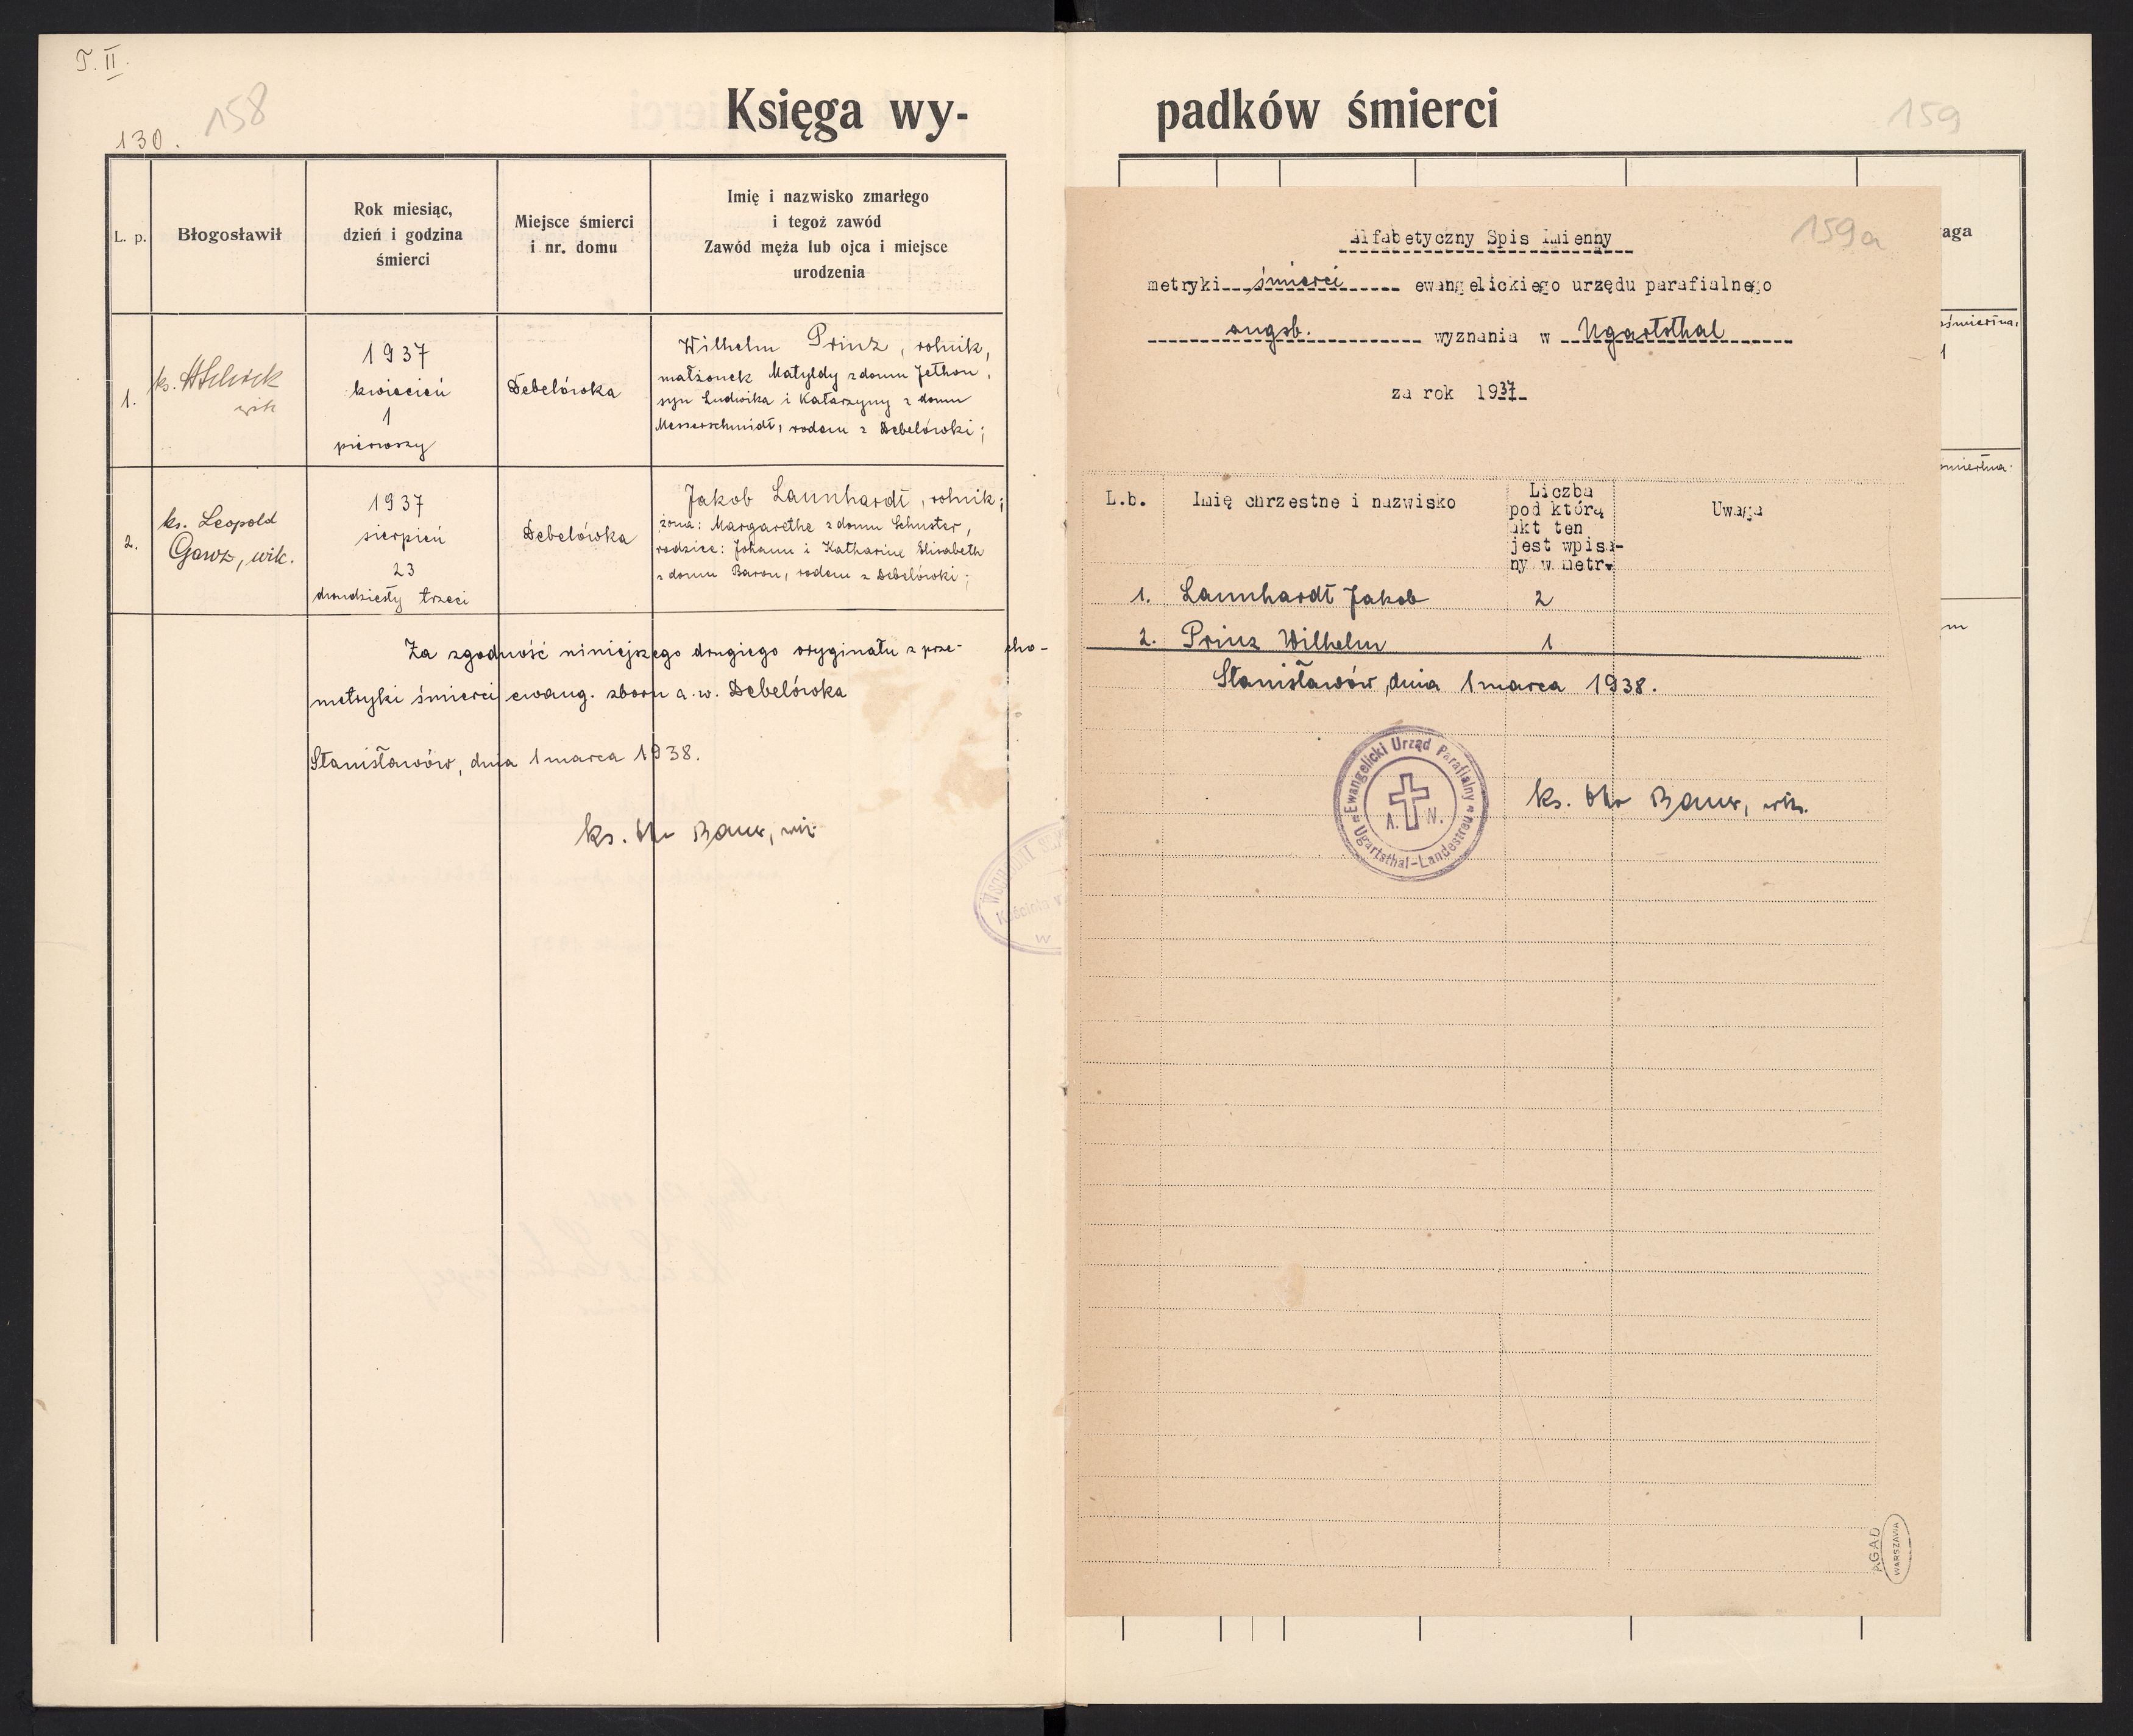 T. II.
158
130.
Księga wy-
L. p.
Błogosławił
Rok miesiąc,
dzień i godzina
śmierci
Miejsce śmierci
i nr. domu
Imię i nazwisko zmarłego
i tegoż zawód
Zawód męża lub ojca i miejsce
urodzenia
1.
ks.
wik
1937
kwiecień
1
pierwszy
Debelówka
Wilhelm Prinz, rolnik,
małżonek Matyldy z domu Jethon,
syn Ludwika i Katarzyny z domu
Messerschmidt, rodem z Debelówki;
2.
ks. Leopold
Gawz, wik.
1937
sierpień
23
dwudziesty trzeci
Debelówka
Jakob Launhardt, rolnik;
żona: Margarethe z domu Schuster,
rodzice: Johann i Katharine Elisabeth
z domu Baron, rodem z Debelówki;
Za zgodność niniejszego drugiego oryginału z prze- cho-
metryki śmierci ewang. zboru a. w. Debelówka
Stanisławów, dnia 1 marca 1938.
ks. Bauer, wik.
Kościoła
w
padków śmierci
159
aga
159a
Alfabetyczny Spis Imienny
metryki śmierci ewangelickiego urzędu parafialnego
augsb. wyznania w Ugartsthal
za rok 1937
L.b.
Imię chrzestne i nazwisko
Liczba
pod którą
akt ten
jest wpisa-
ny w metr.
Uwaga
1. Launhardt Jakob 2
2. Prinz Wilhelm 1
Stanisławów, dnia 1 marca 1938.
Ewangelicki Urząd Parafialny
A. W.
Ugartsthal-Landestreu
ks. Bauer, wik.
AGAD
WARSZAWA